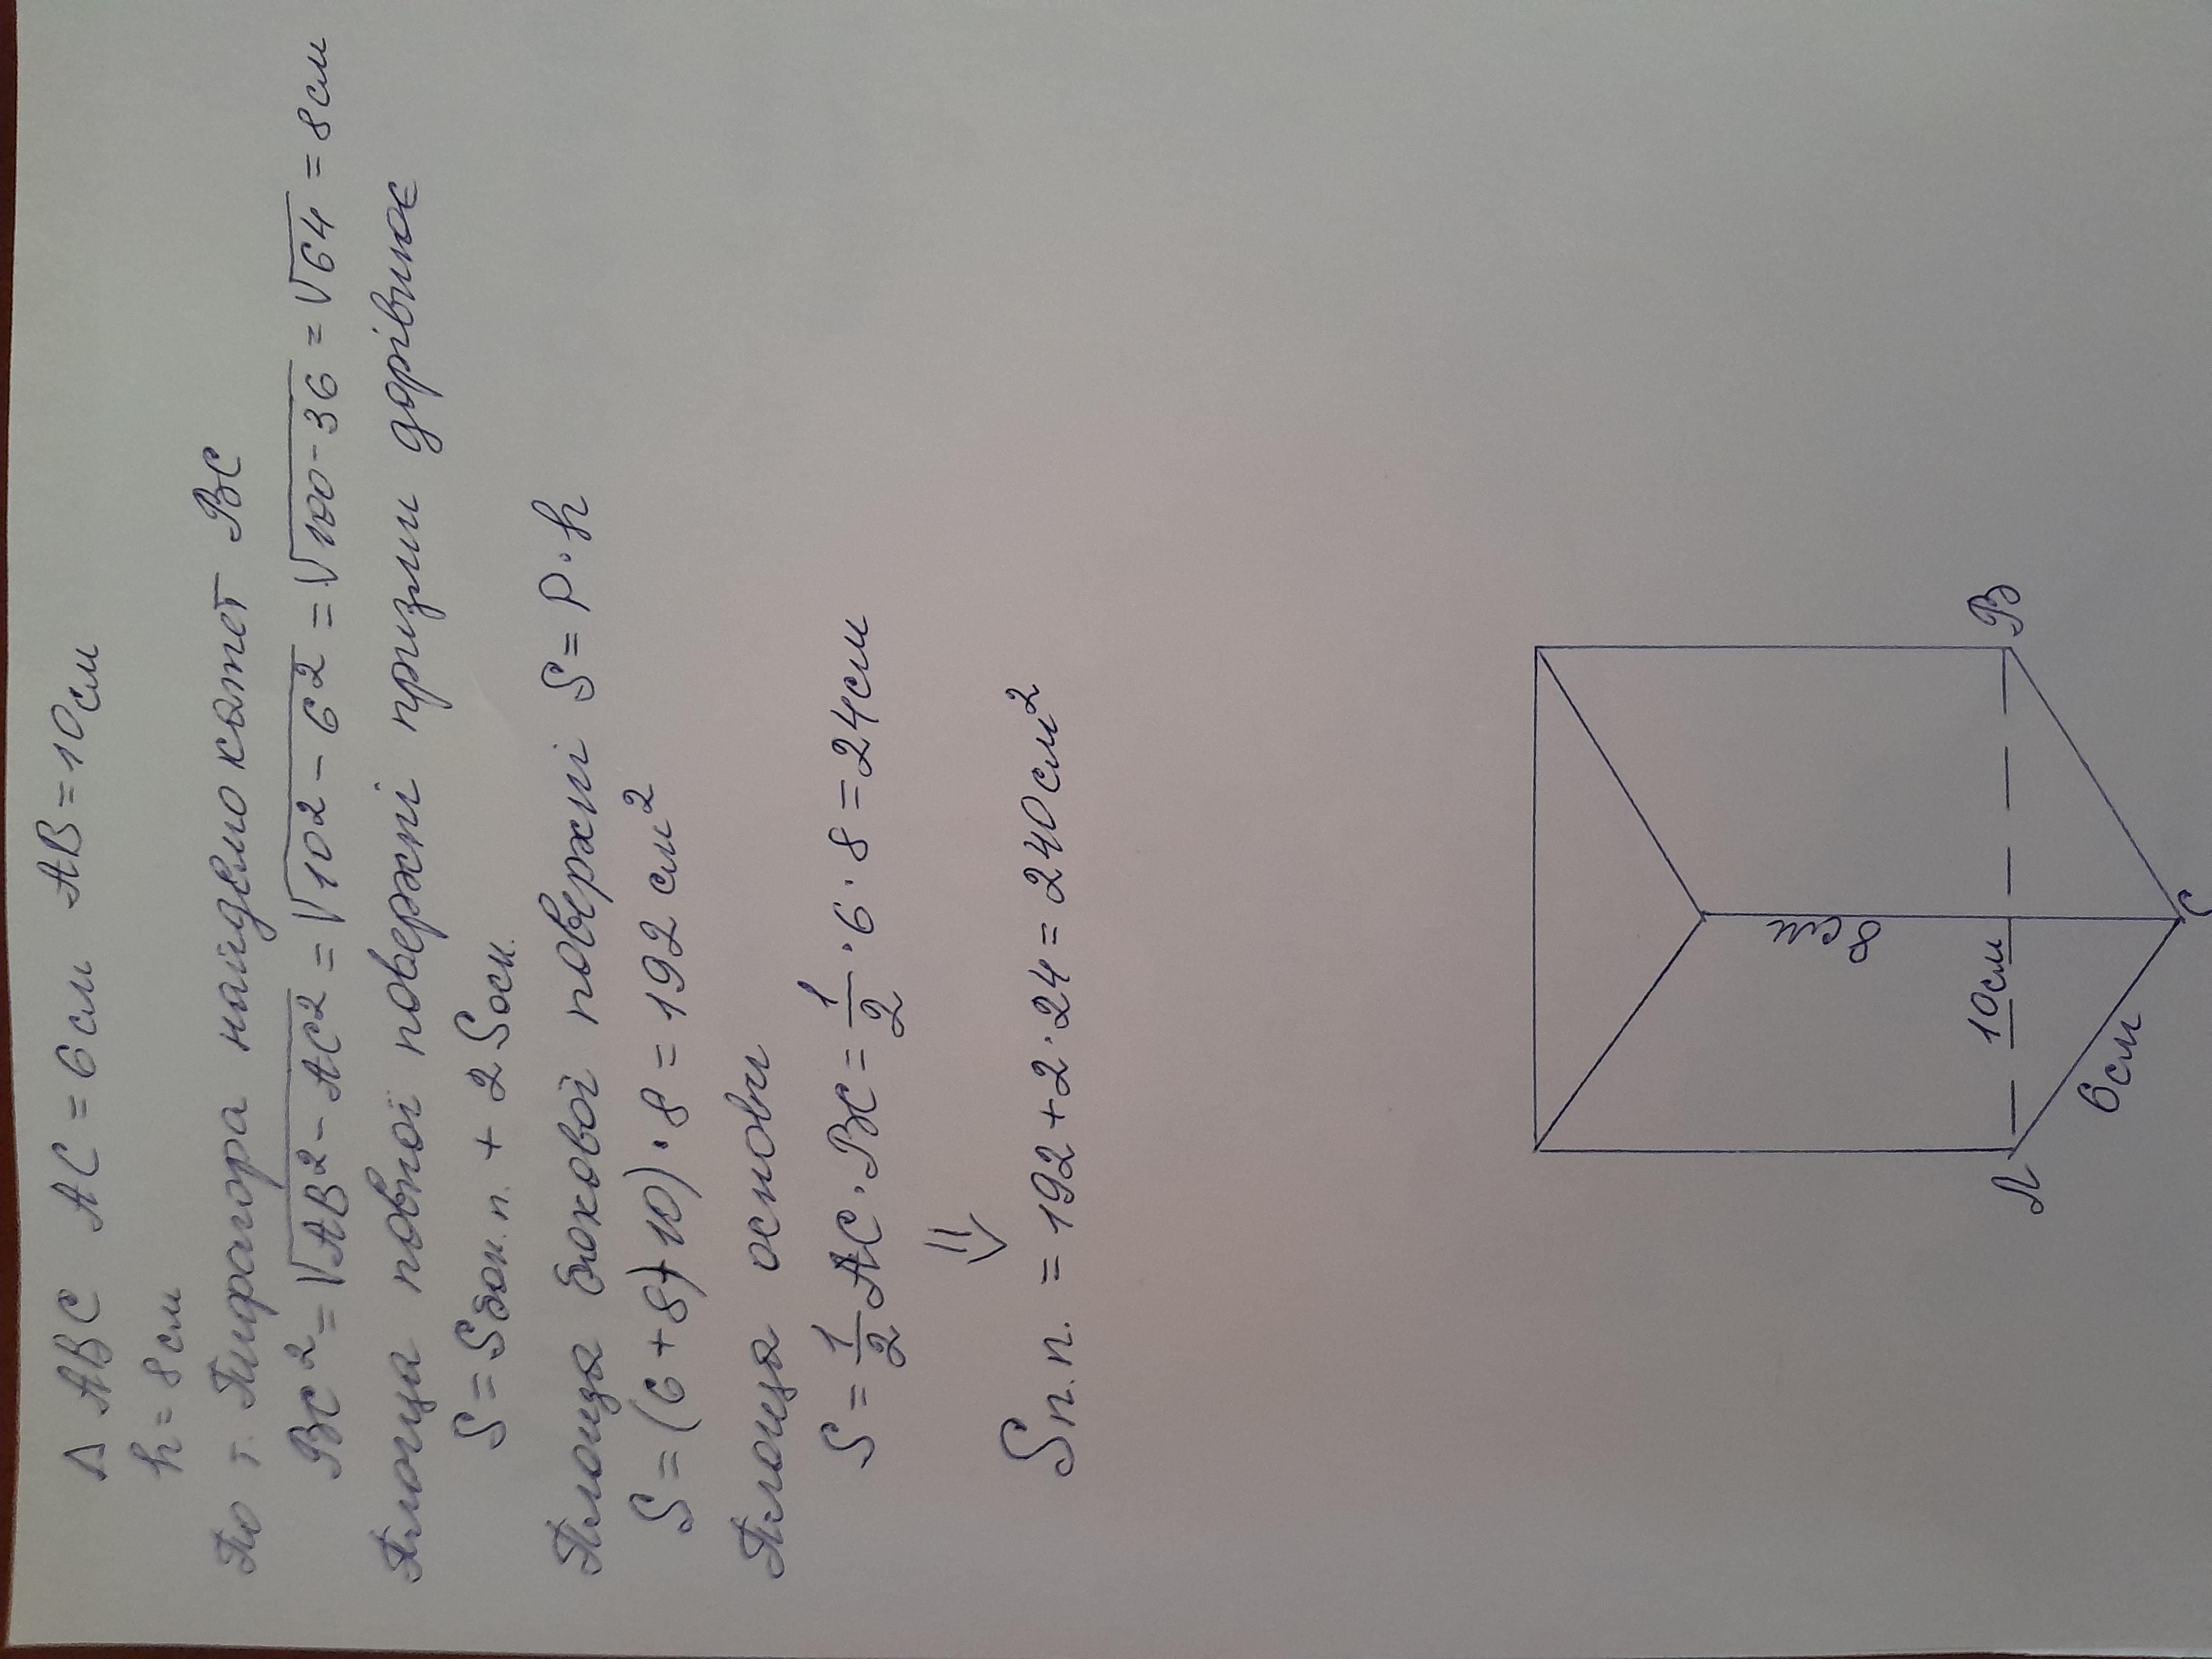 Δ ABC AC = 6 см AB = 10 см
h = 8 см
По т. Пифагора найдемо катет BC
BC² = √AB² - AC² = √10² - 6² = √100 - 36 = √64 = 8 см
Площа повної поверхні призми дорівнює
S = Sбок.п. + 2 Sосн.
Площа бокової поверхні S = P · h
S = (6 + 8 + 10) · 8 = 192 см²
Площа основи
S = 1/2 AC · BC = 1/2 · 6 · 8 = 24 см
⇓
Sп.п. = 192 + 2 · 24 = 240 см²
8 см
A 10 см B
6 см
C